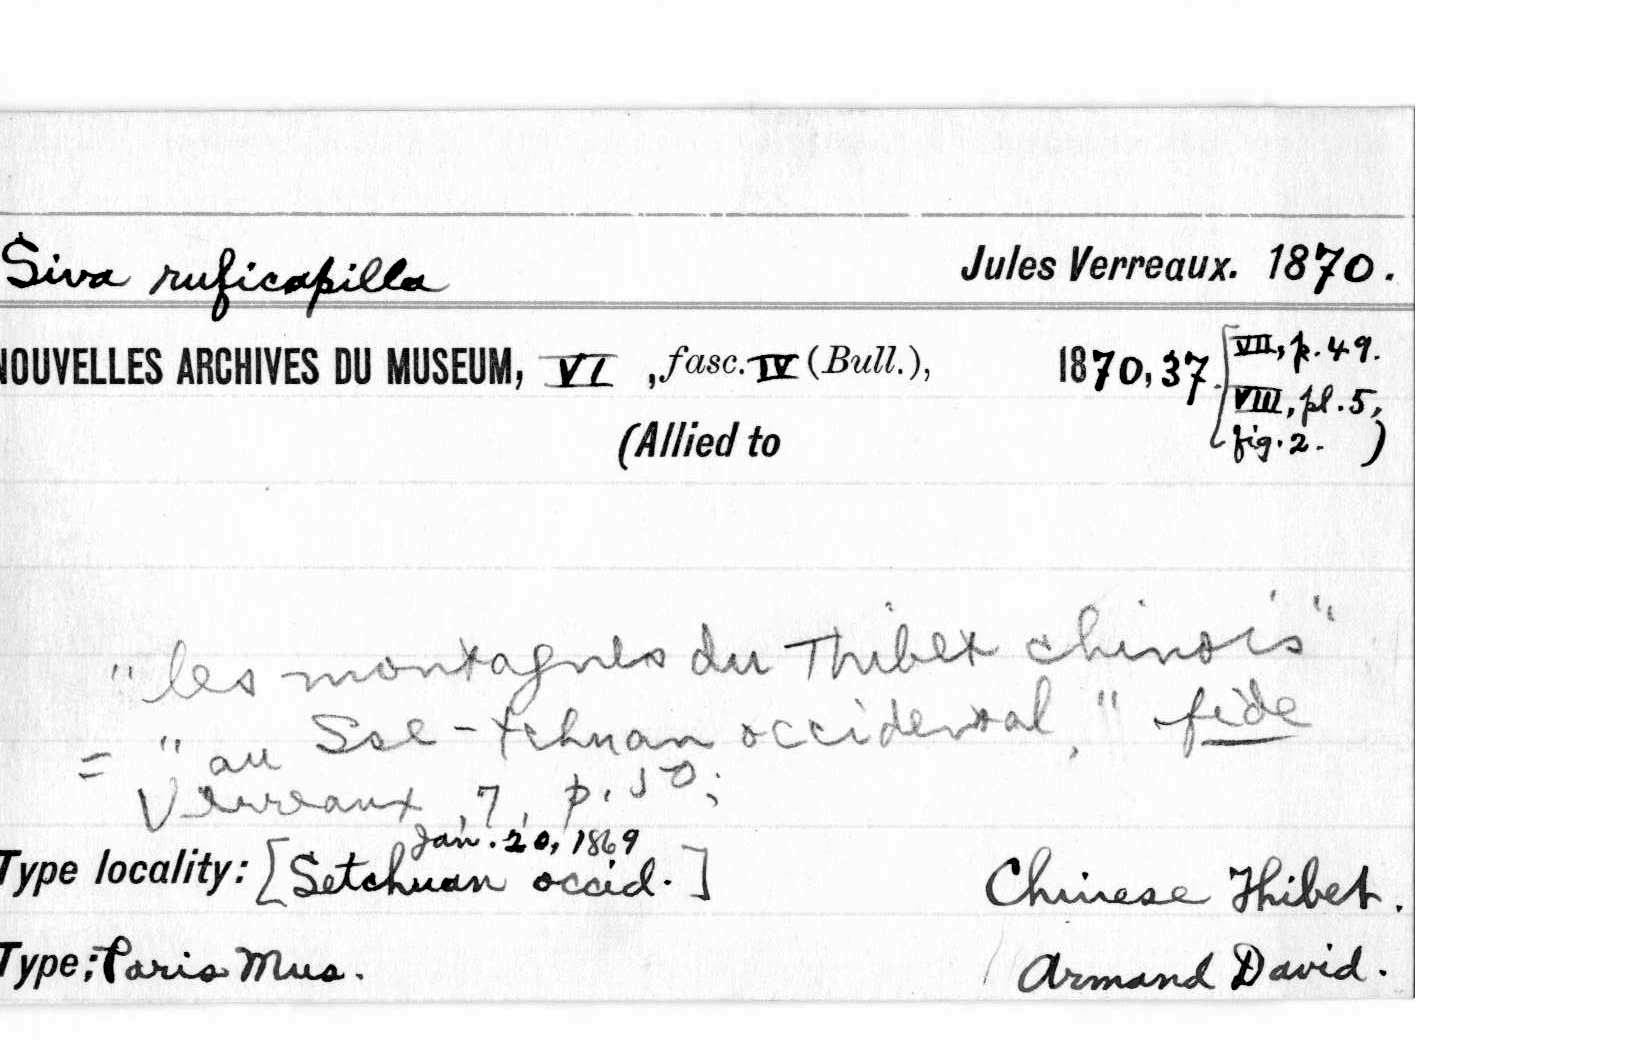 Siva ruficapilla Jules Verreaux. 1870.
NOUVELLES ARCHIVES DU MUSEUM, VI, fasc. IV (Bull.), 1870, 37. [VII, p. 49.
VIII, pl. 5,
(Allied to fig. 2. )
"les montagnes du Thibet chinois"
= "au Sse-tchuan occidental," fide
Verreaux, 7, p. 50;
Jan. 20, 1869
Type locality: [Setchuan occid.] Chinese Thibet.
Type: Paris Mus. Armand David.